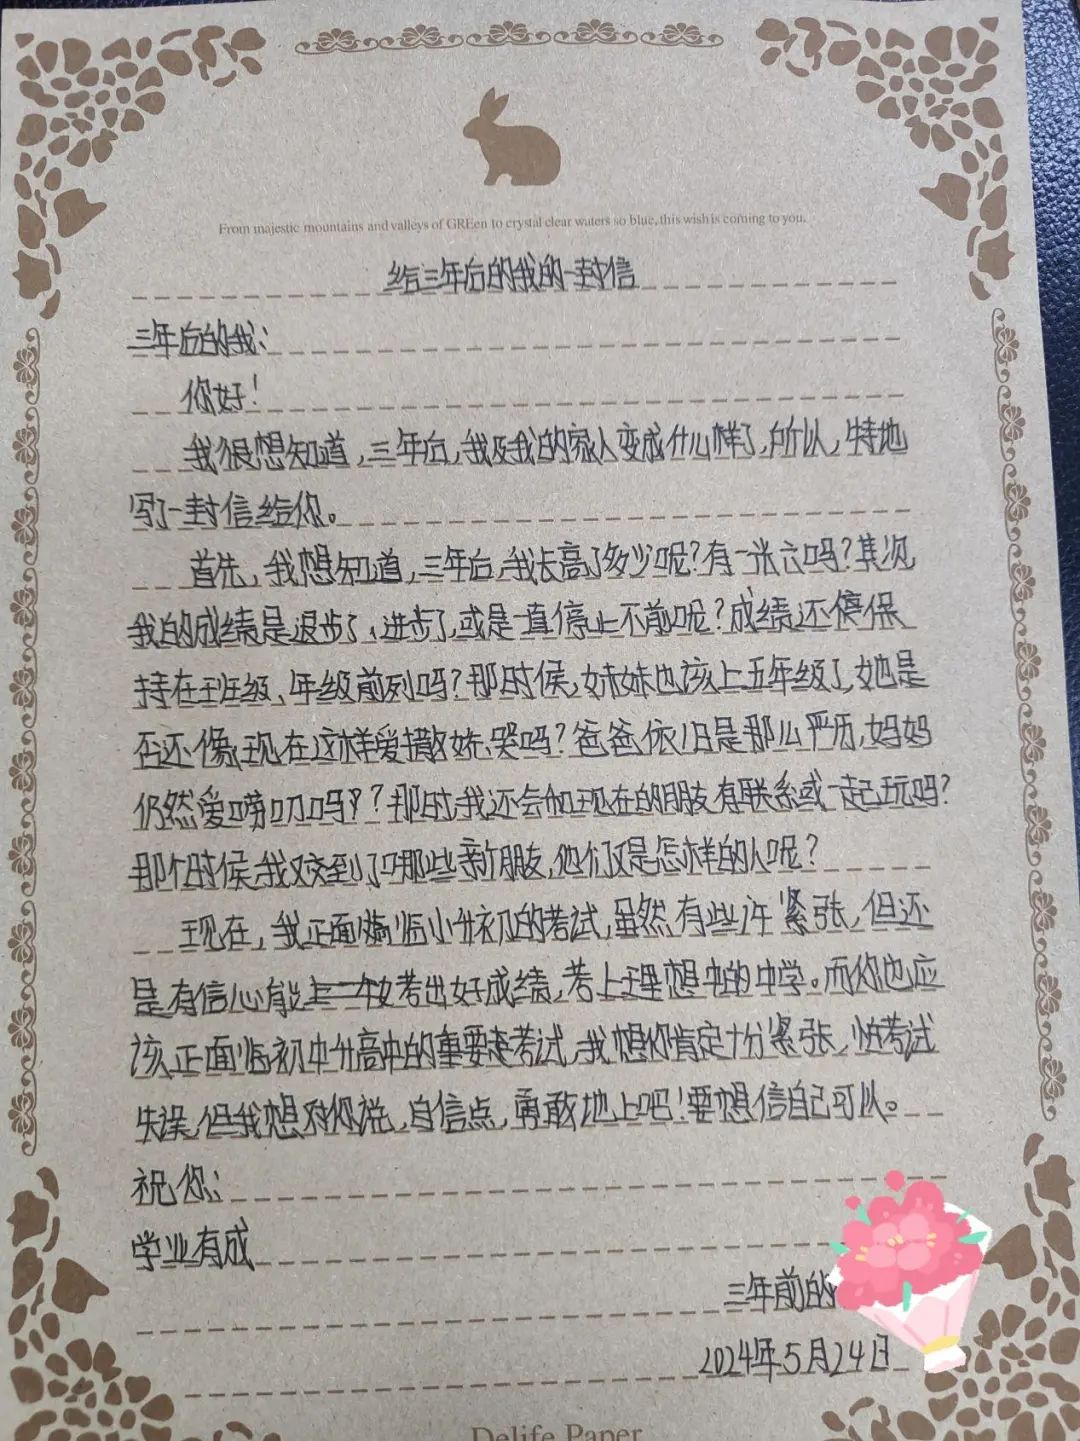 From majestic mountains and valleys of GREen to crystal clear waters so blue, this wish is coming to you.
给三年后的我的一封信
三年后的我：
你好！
我很想知道，三年后，我及我的家人变成什么样了，所以，特地
写了一封信给你。
首先，我想知道，三年后，我长高了多少呢？有一张六吗？其次，
我的成绩是退步了、进步了，或是一直停止不前呢？成绩还保
持在班级、年级前列吗？那时候，妹妹也该上五年级了，她是
否还像现在这样爱撒娇、哭吗？爸爸依旧是那么严历，妈妈
仍然爱唠叨吗？？那时，我还会和现在的朋友有联系或一起玩吗？
那个时候，我又交到了哪些新朋友，他们又是怎样的人呢？
现在，我正面临小升初的考试，虽然有些许紧张，但还
是有信心能考出好成绩，考上理想中的中学。而你也应
该正面临初中升高中的重要考试，我想你肯定十分紧张，怕考试
失误，但我想对你说，自信点，勇敢地上吧！要想信自己可以。
祝你：
学业有成
三年前的
2024年5月24日
Delife Paper